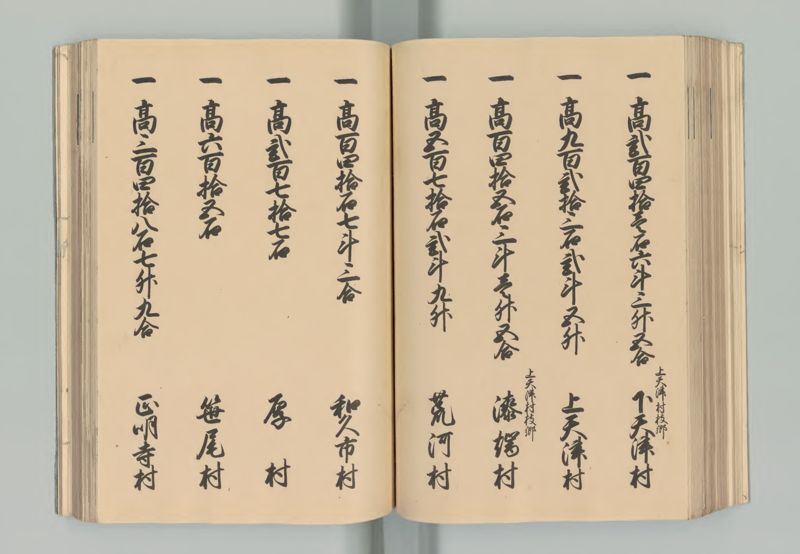 一 高弐百四拾壱石六斗三升五合
上天津村枝郷
下天津村
一 高九百弐拾三石弐斗五升
上天津村
一 高百四拾五石三斗壱升五合
上天津村枝郷
漆端村
一 高五百七拾石弐斗九升
荒河村
一 高百四拾石七斗三合
和久市村
一 高弐百七拾七石
厚村
一 高六百拾五石
笹尾村
一 高三百四拾八石七升九合
正明寺村